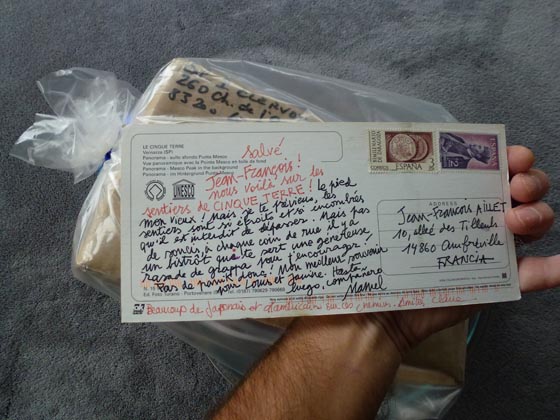 260 Ch. de l
LE CINQUE TERRE
Vernazza (SP)
Panorama - sullo sfondo Punta Mesco
Vue panoramique avec la Punta Mesco en toile de fond
Panorama - Mesco Peak in the background
Panorama - im Hinterground Punta Mesco
UNESCO
Salvé
Jean-François!
nous voilà sur les
sentiers de CINQUE TERRE! le pied
mon vieux! Mais je te préviens, les
sentiers sont si étroits et si encombrés
qu'il est interdit de dépasser. Mais pas
de soucis, à chaque coin de rue il y a
un bistrot qui te sert une généreuse
rasade de grappa pour t'encourager.
Pas de permis à points! Mon meilleur souvenir
pour Louis et Janine. Hasta
luego, compañero
Manuel
Beaucoup de Japonais et d'américains sur ces chemins. Amitiés
ESPAÑA
CORREOS
3
ADDRESS
Jean-François AILLET
10, allée des Tilleuls
14860 Amfréville
FRANCIA